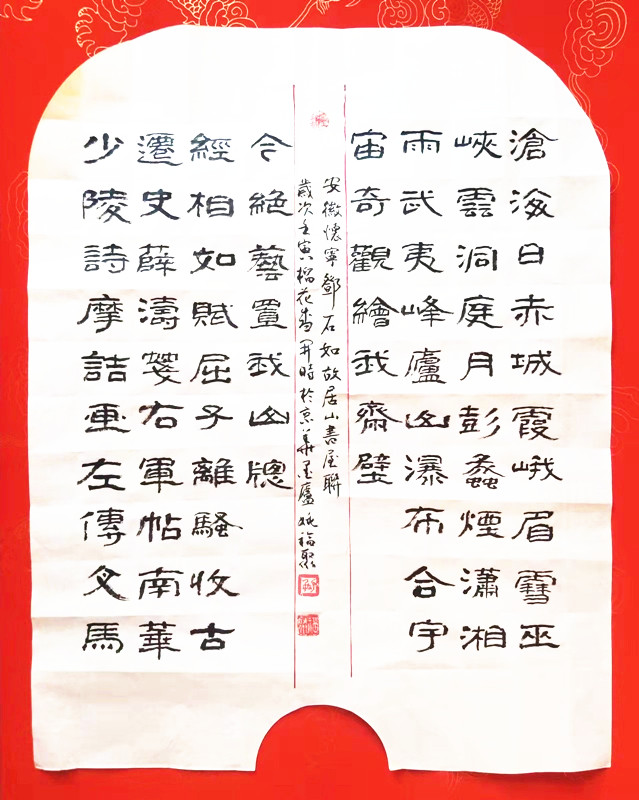 滄海日赤城霞峨眉雪巫
峽雲洞庭月彭蠡煙瀟湘
雨武夷峰廬山瀑布合宇
宙奇觀繪我齋壁
少陵詩摩詰画左傳文馬
遷史薛濤箋右軍帖南華
經相如賦屈子離騷收古
今絕藝置我山牕
安徽懷寧鄧石如故居山書屋聯
歲次壬寅榴花盛開時於京華墨廬姚福聚